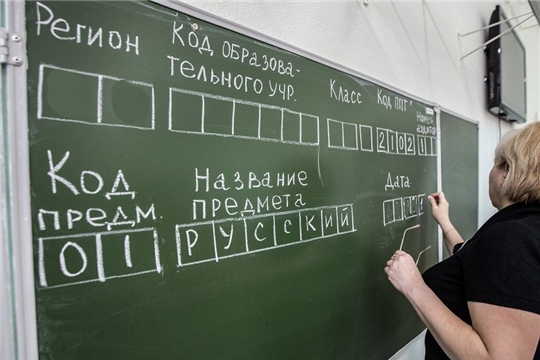 Регион
Код образова-
тельного учр.
Класс
Код ППТ*
Номер
аудитор
2102
Код
предм.
01
Название
предмета
РУССКИЙ
Дата